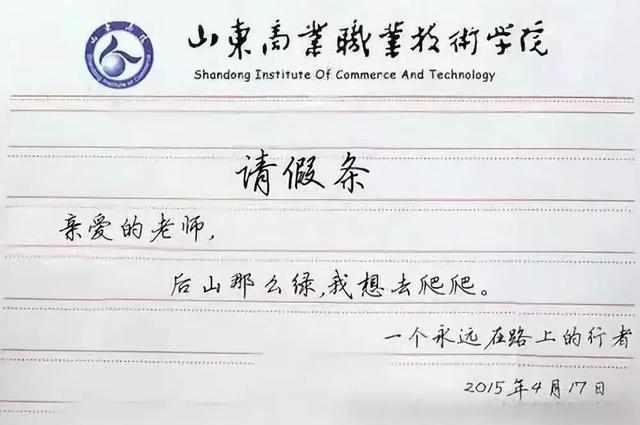 山東商業職業技術学院
Shandong Institute Of Commerce And Technology
山东商院
Shandong Institute of Commerce
请假条
亲爱的老师，
后山那么绿，我想去爬爬。
一个永远在路上的行者
2015年4月17日